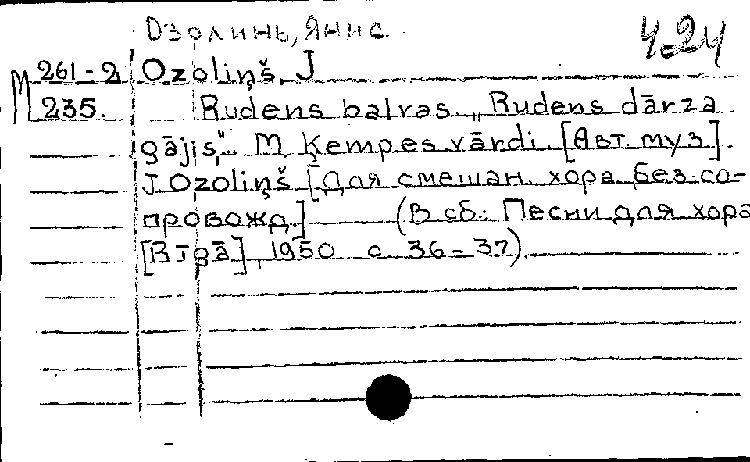 Озолинь, Янис
4-24
М 261-2 Ozoliņš, J
235. Rudens balvas „Rudens dārza
gājis,“ M. Ķempes vārdi. [Авт. муз.]
J. Ozoliņš [Для смешан. хора без со-
провожд.] (В сб: Песни для хора
[Rīgā], 1950 с. 36-37).